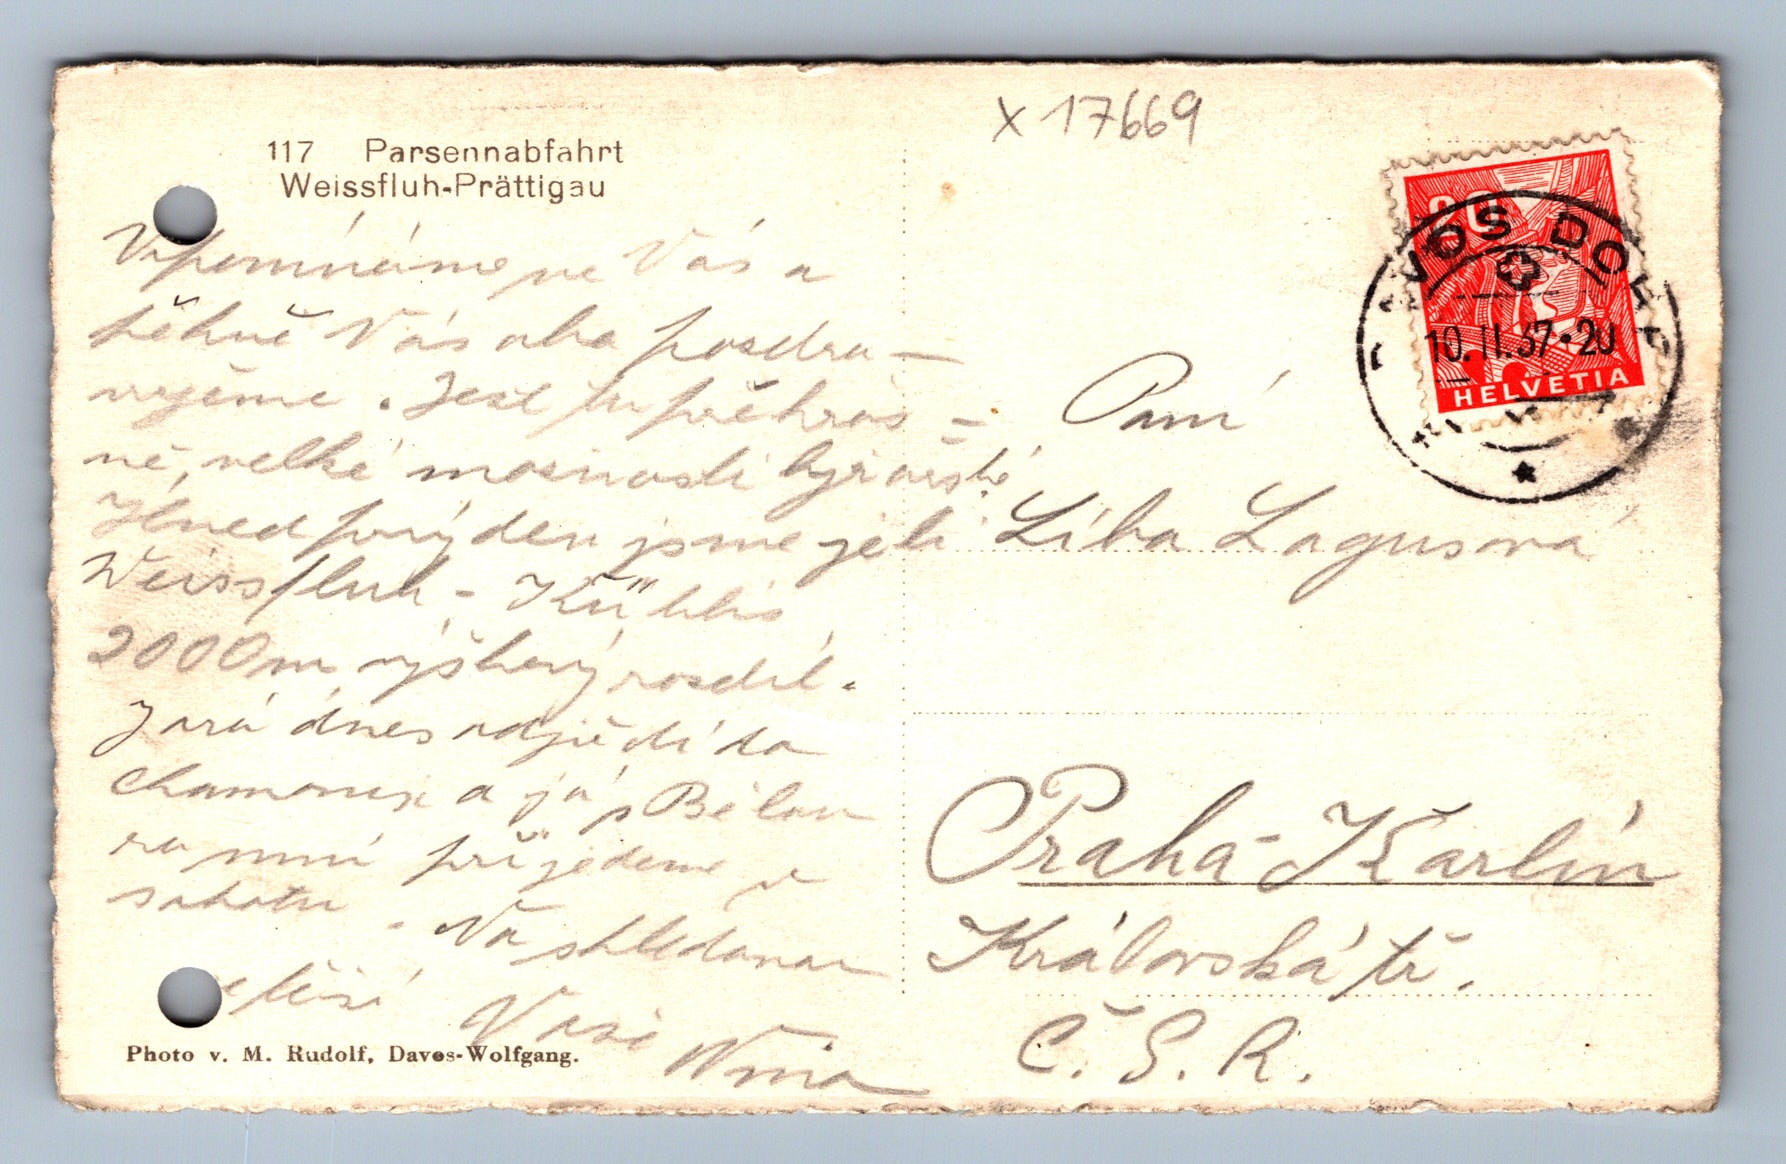 X 17669
117 Parsennabfahrt
Weissfluh-Prättigau
20
DAVOS DORF
10. II. 37 • 20
HELVETIA
Vzpomínáme na Vás a
pěkně Vás oba pozdra-
vujeme. Jest tu překrás=
ně, velké možnosti lyžařské.
Hned prvý den jsme jeli
Weissfluh - Küblis
2000 m výškový rozdíl.
Jará dnes odjíždí do
Chamonix a já s Bélou
a přijedeme v
sobotu. Na shledanou
se těší
Vaše
Nina
Paní
Líba Lagusová
Praha - Karlín
Královská tř.
Č. S. R.
Photo v. M. Rudolf, Davos-Wolfgang.